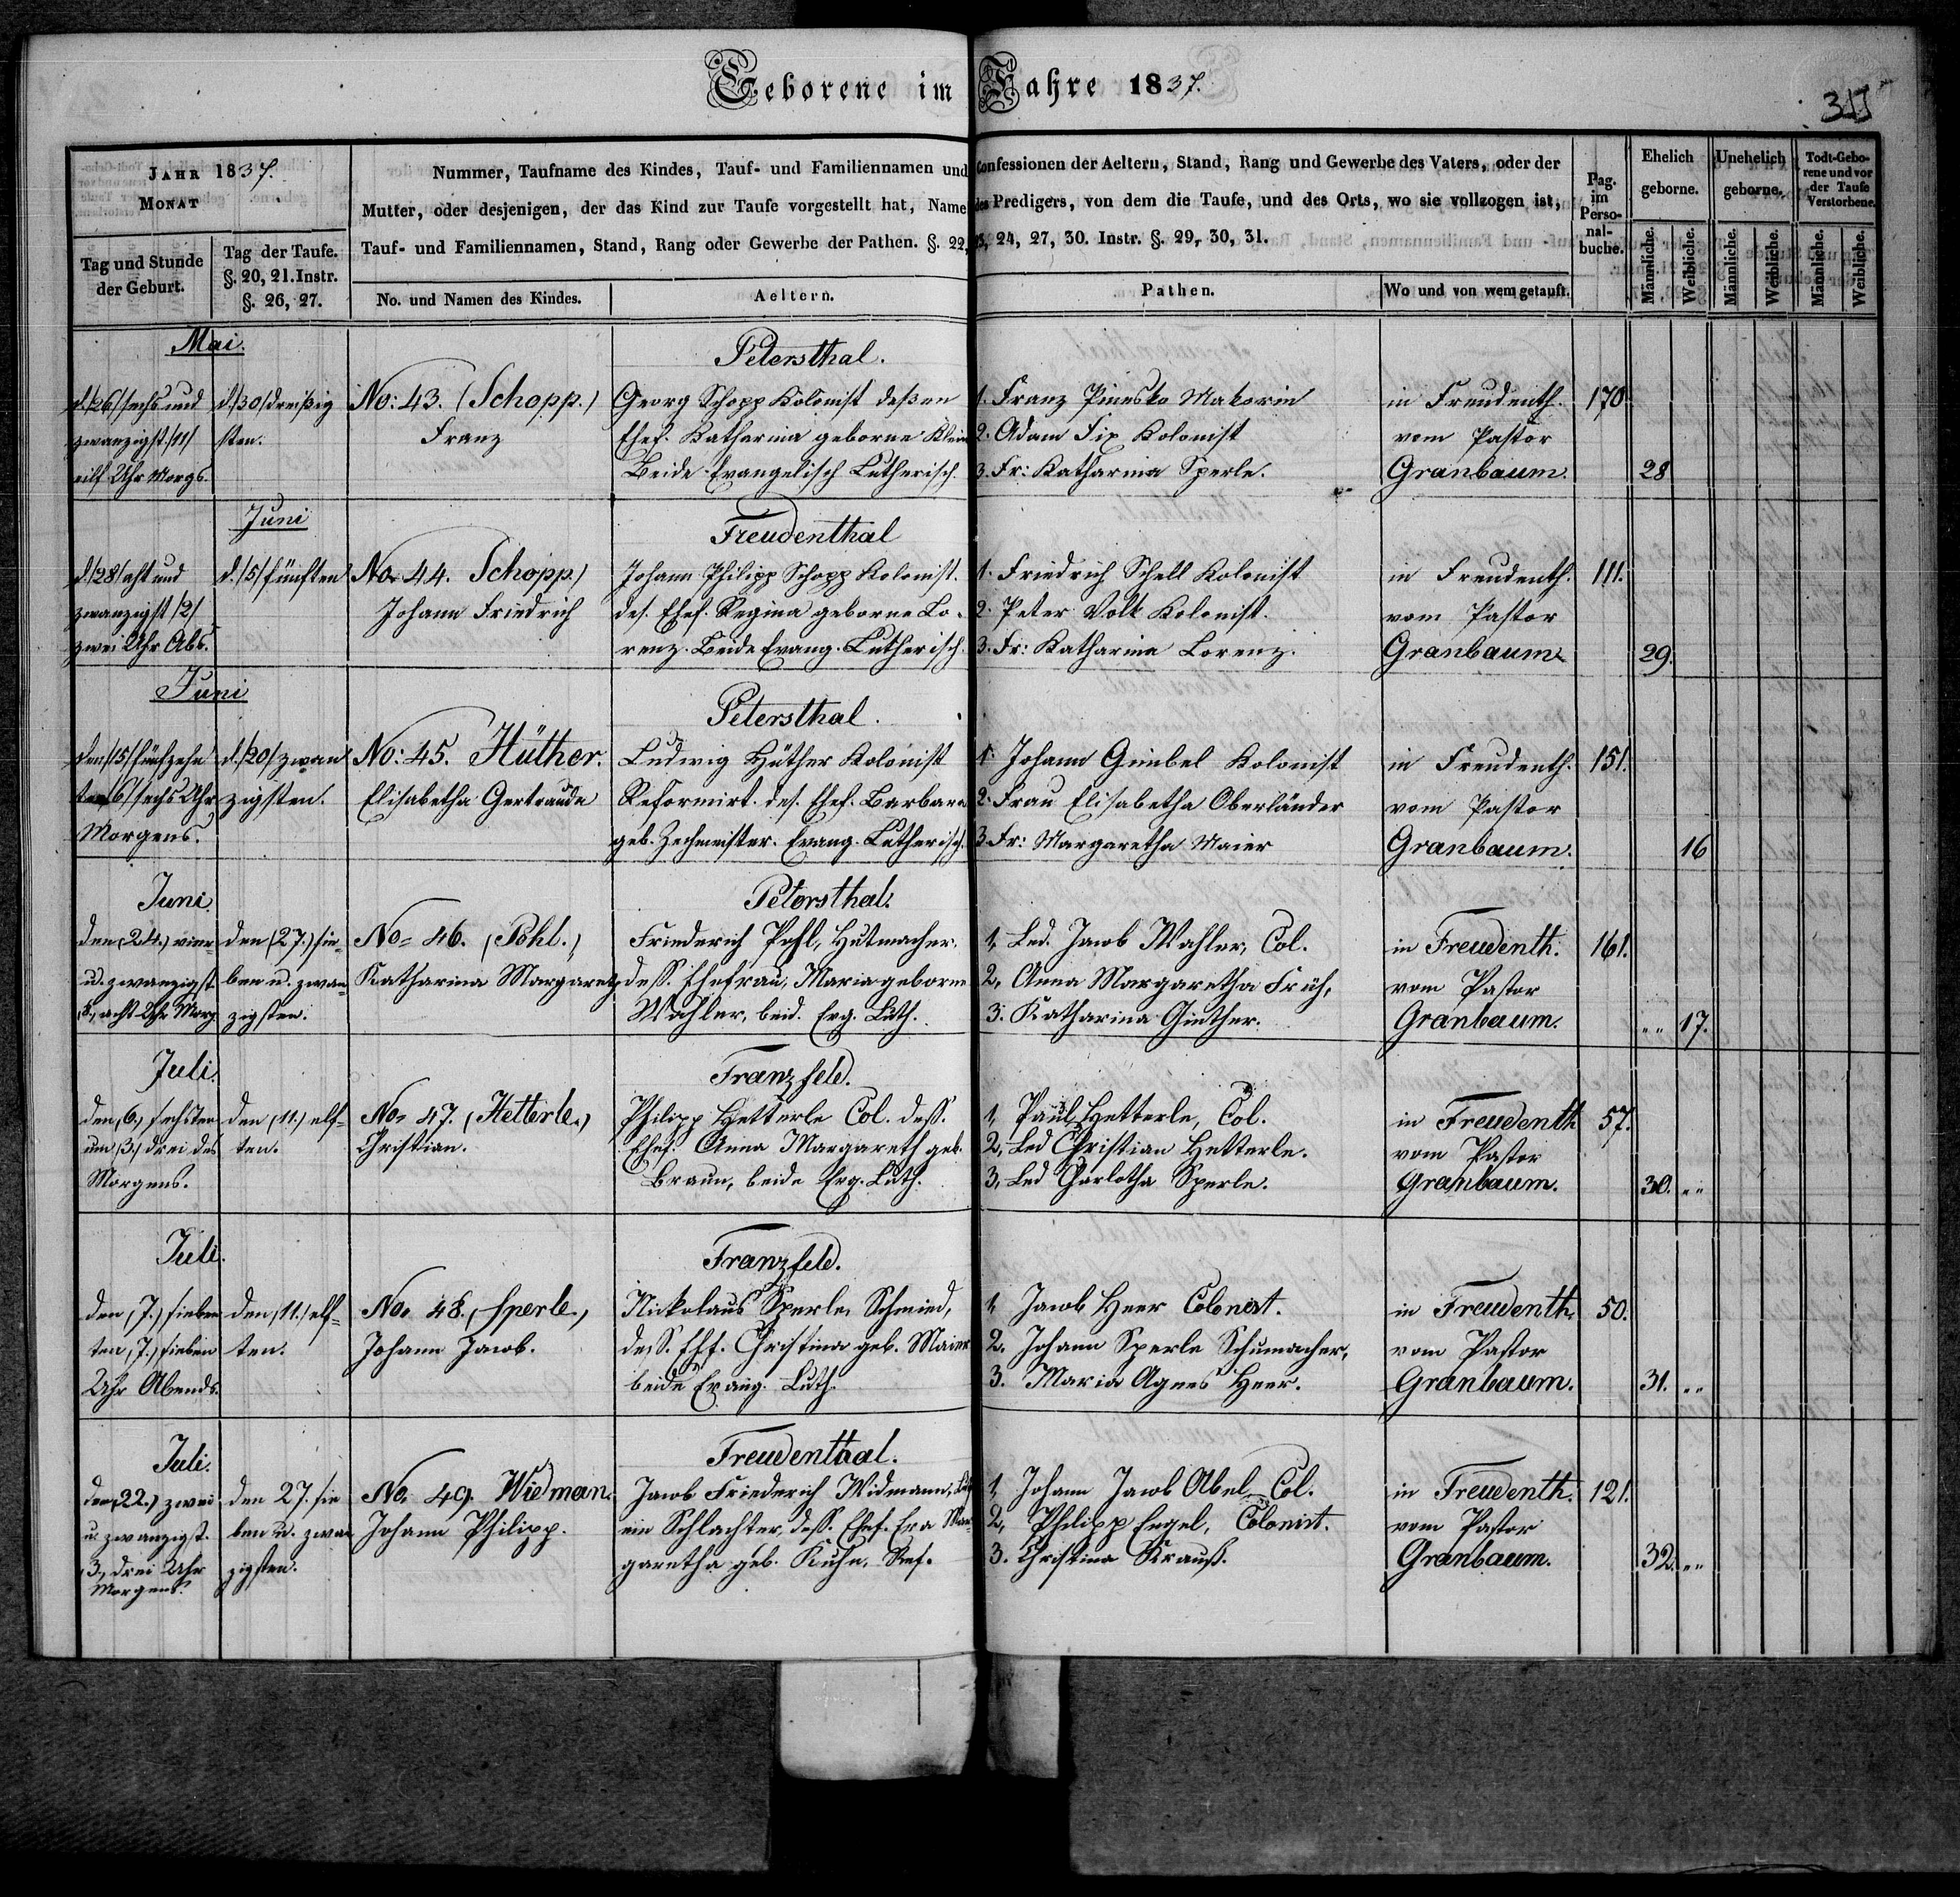 Geborene im Jahre 1837.
JAHR 1837.
MONAT
Tag und Stunde der Geburt.
Tag der Taufe. §. 20, 21. Instr. §. 26, 27.
Nummer, Taufname des Kindes, Tauf- und Familiennamen und Confessionen der Aeltern, Stand, Rang und Gewerbe des Vaters, oder der
Mutter, oder desjenigen, der das Kind zur Taufe vorgestellt hat, Name des Predigers, von dem die Taufe, und des Orts, wo sie vollzogen ist,
Tauf- und Familiennamen, Stand, Rang oder Gewerbe der Pathen. §. 22, 23, 24, 27, 30. Instr. §. 29, 30, 31.
No. und Namen des Kindes.
Aeltern.
Pathen.
Wo und von wem getauft.
Pag. im Personalbuche.
Ehelich geborne.
Unehelich geborne.
Todt-Geborene und vor der Taufe Verstorbene.
Männliche.
Weibliche.
Männliche.
Weibliche.
Männliche.
Weibliche.
Mai.
d./26/ sechs und
zwanzigst. /11/
eilf Uhr Morgs.
d./30/ dreißig
sten.
No: 43. (Schopp.)
Franz
Petersthal.
Georg Schopp Kolonist deßen
Ehef. Katharina geborne Klein
Beide Evangelisch Lutherisch.
1. Franz Pinesko Makorin
2. Adam Fix Kolonist
3. Fr: Katharina Sperle.
in Freudenth.
vom Pastor
Granbaum.
170.
28
Juni
d./28/ acht und
zwanzigst /2/
zwei Uhr Abs.
d./5/ fünften
No. 44. Schopp.)
Johann Friedrich
Freudenthal
Johann Philipp Schopp Kolonist.
des. Ehef. Regina geborne Lo-
renz. Beide Evang. Lutherisch.
1. Friedrich Schell Kolonist
2. Peter Volk Kolonist.
3. Fr: Katharina Lorenz.
in Freudenth.
vom Pastor
Granbaum.
111.
29.
Juni
den /15/ fünfzehn
ten /6/ sechs Uhr
Morgens.
d./20/ zwan
zigsten.
No: 45. Hüther.
Elisabetha Gertraude
Petersthal.
Ludwig Hüther Kolonist
Reformirt. des. Ehef. Barbara
geb. Zechmeister. Evang. Lutherisch.
1. Johann Gimbel Kolonist
2. Frau Elisabetha Oberländer
3. Fr: Margaretha Maier
in Freudenth.
vom Pastor
Granbaum.
151.
16
Juni
den (24.) vier
u. zwanzigst.
8, acht Uhr Morg.
den (27.) sie-
ben u. zwan-
zigsten.
No= 46. (Pohl.)
Katharina Margareth.
Petersthal.
Friederich Pohl, Hutmacher.
dess. Ehefrau, Maria geborne
Wahler, beid. Evg. Luth.
1, Led. Jacob Wahler, Col.
2, Anna Margaretha Früh,
3. Katharina Ginther.
in Freudenth.
vom Pastor
Granbaum.
161.
" " 17.
Juli.
den (6.) sechsten
um (3.) drei des
Morgens.
den (11.) elf-
ten.
No= 47. (Hetterle.)
Christian.
Franzfeld.
Philipp Hetterle Col. dess.
Ehef. Anna Margareth geb.
Braun, beide Evg. Luth.
1, Paul Hetterle, Col.
2, Led Christian Hetterle.
3, Led Charlotha Sperle.
in Freudenth
vom Pastor
Granbaum.
57.
30. " "
Juli.
den (7.) sieben
ten, (7.) sieben
Uhr Abends.
den (11.) elf-
ten.
No. 48. (Sperle.)
Johann Jacob.
Franzfeld.
Nickolaus Sperle, Schmied,
dess. Ehf. Christina geb. Maier
beide Evang. Luth.
1, Jacob Heer Colonist.
2. Johann Sperle Schumacher,
3. Maria Agnes Heer.
in Freudenth.
vom Pastor
Granbaum.
50.
31. " "
Juli.
den (22.) zwei
u. zwanzigst.
3, drei Uhr
Morgens.
den 27. sie
ben u. zwan
zigsten.
No. 49. Wiedman.
Johann Philipp.
Freudenthal.
Jacob Friederich Widmann,
ein Schlachter, dess. Ehef. Eva Mar-
garetha geb. Kuhn, Ref.
1, Johann Jacob Abel, Col.
2, Philipp Engel, Colonist.
3. Christina Krauß.
in Freudenth.
vom Pastor
Granbaum.
121.
32. " "